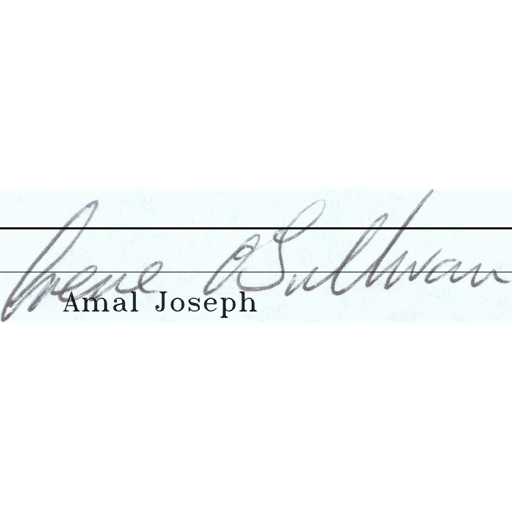 Irene O'Sullivan
Amal Joseph